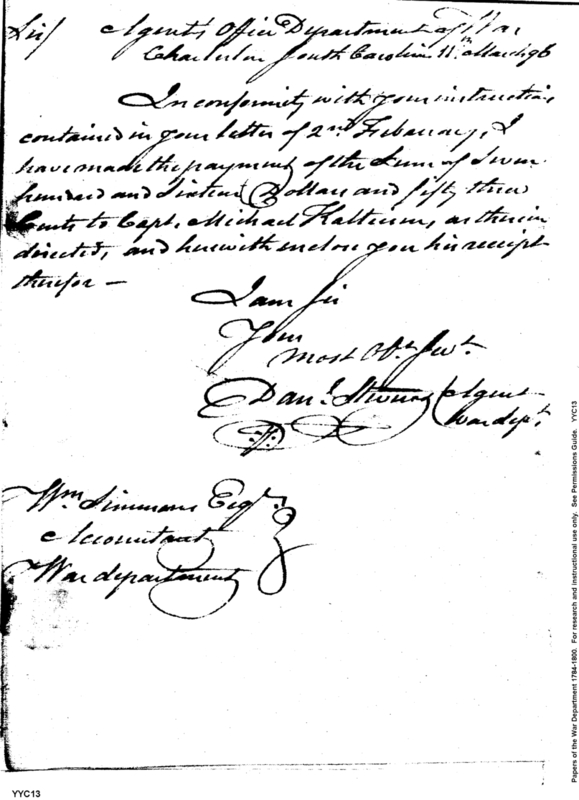 Sir/ Agents Office Department of War
Charleston South Carolina 11th March 96
In conformity with your instructions
contained in your letter of 2nd February, I
have made the payment of the Sum of Seven
hundred and Sixteen Dollars and fifty three
Cents to Capt. Michael Kalteisen, as therein
directed, and herewith enclose you his receipt
therefor —
I am Sir
Your
most Obt. Servt.
Danl. Stevens Agent
War dept.
Wm. Simmons Esqr.
Accountant
War department
Papers of the War Department 1784-1800. For research and instructional use only. See Permissions Guide. YYC13
YYC13